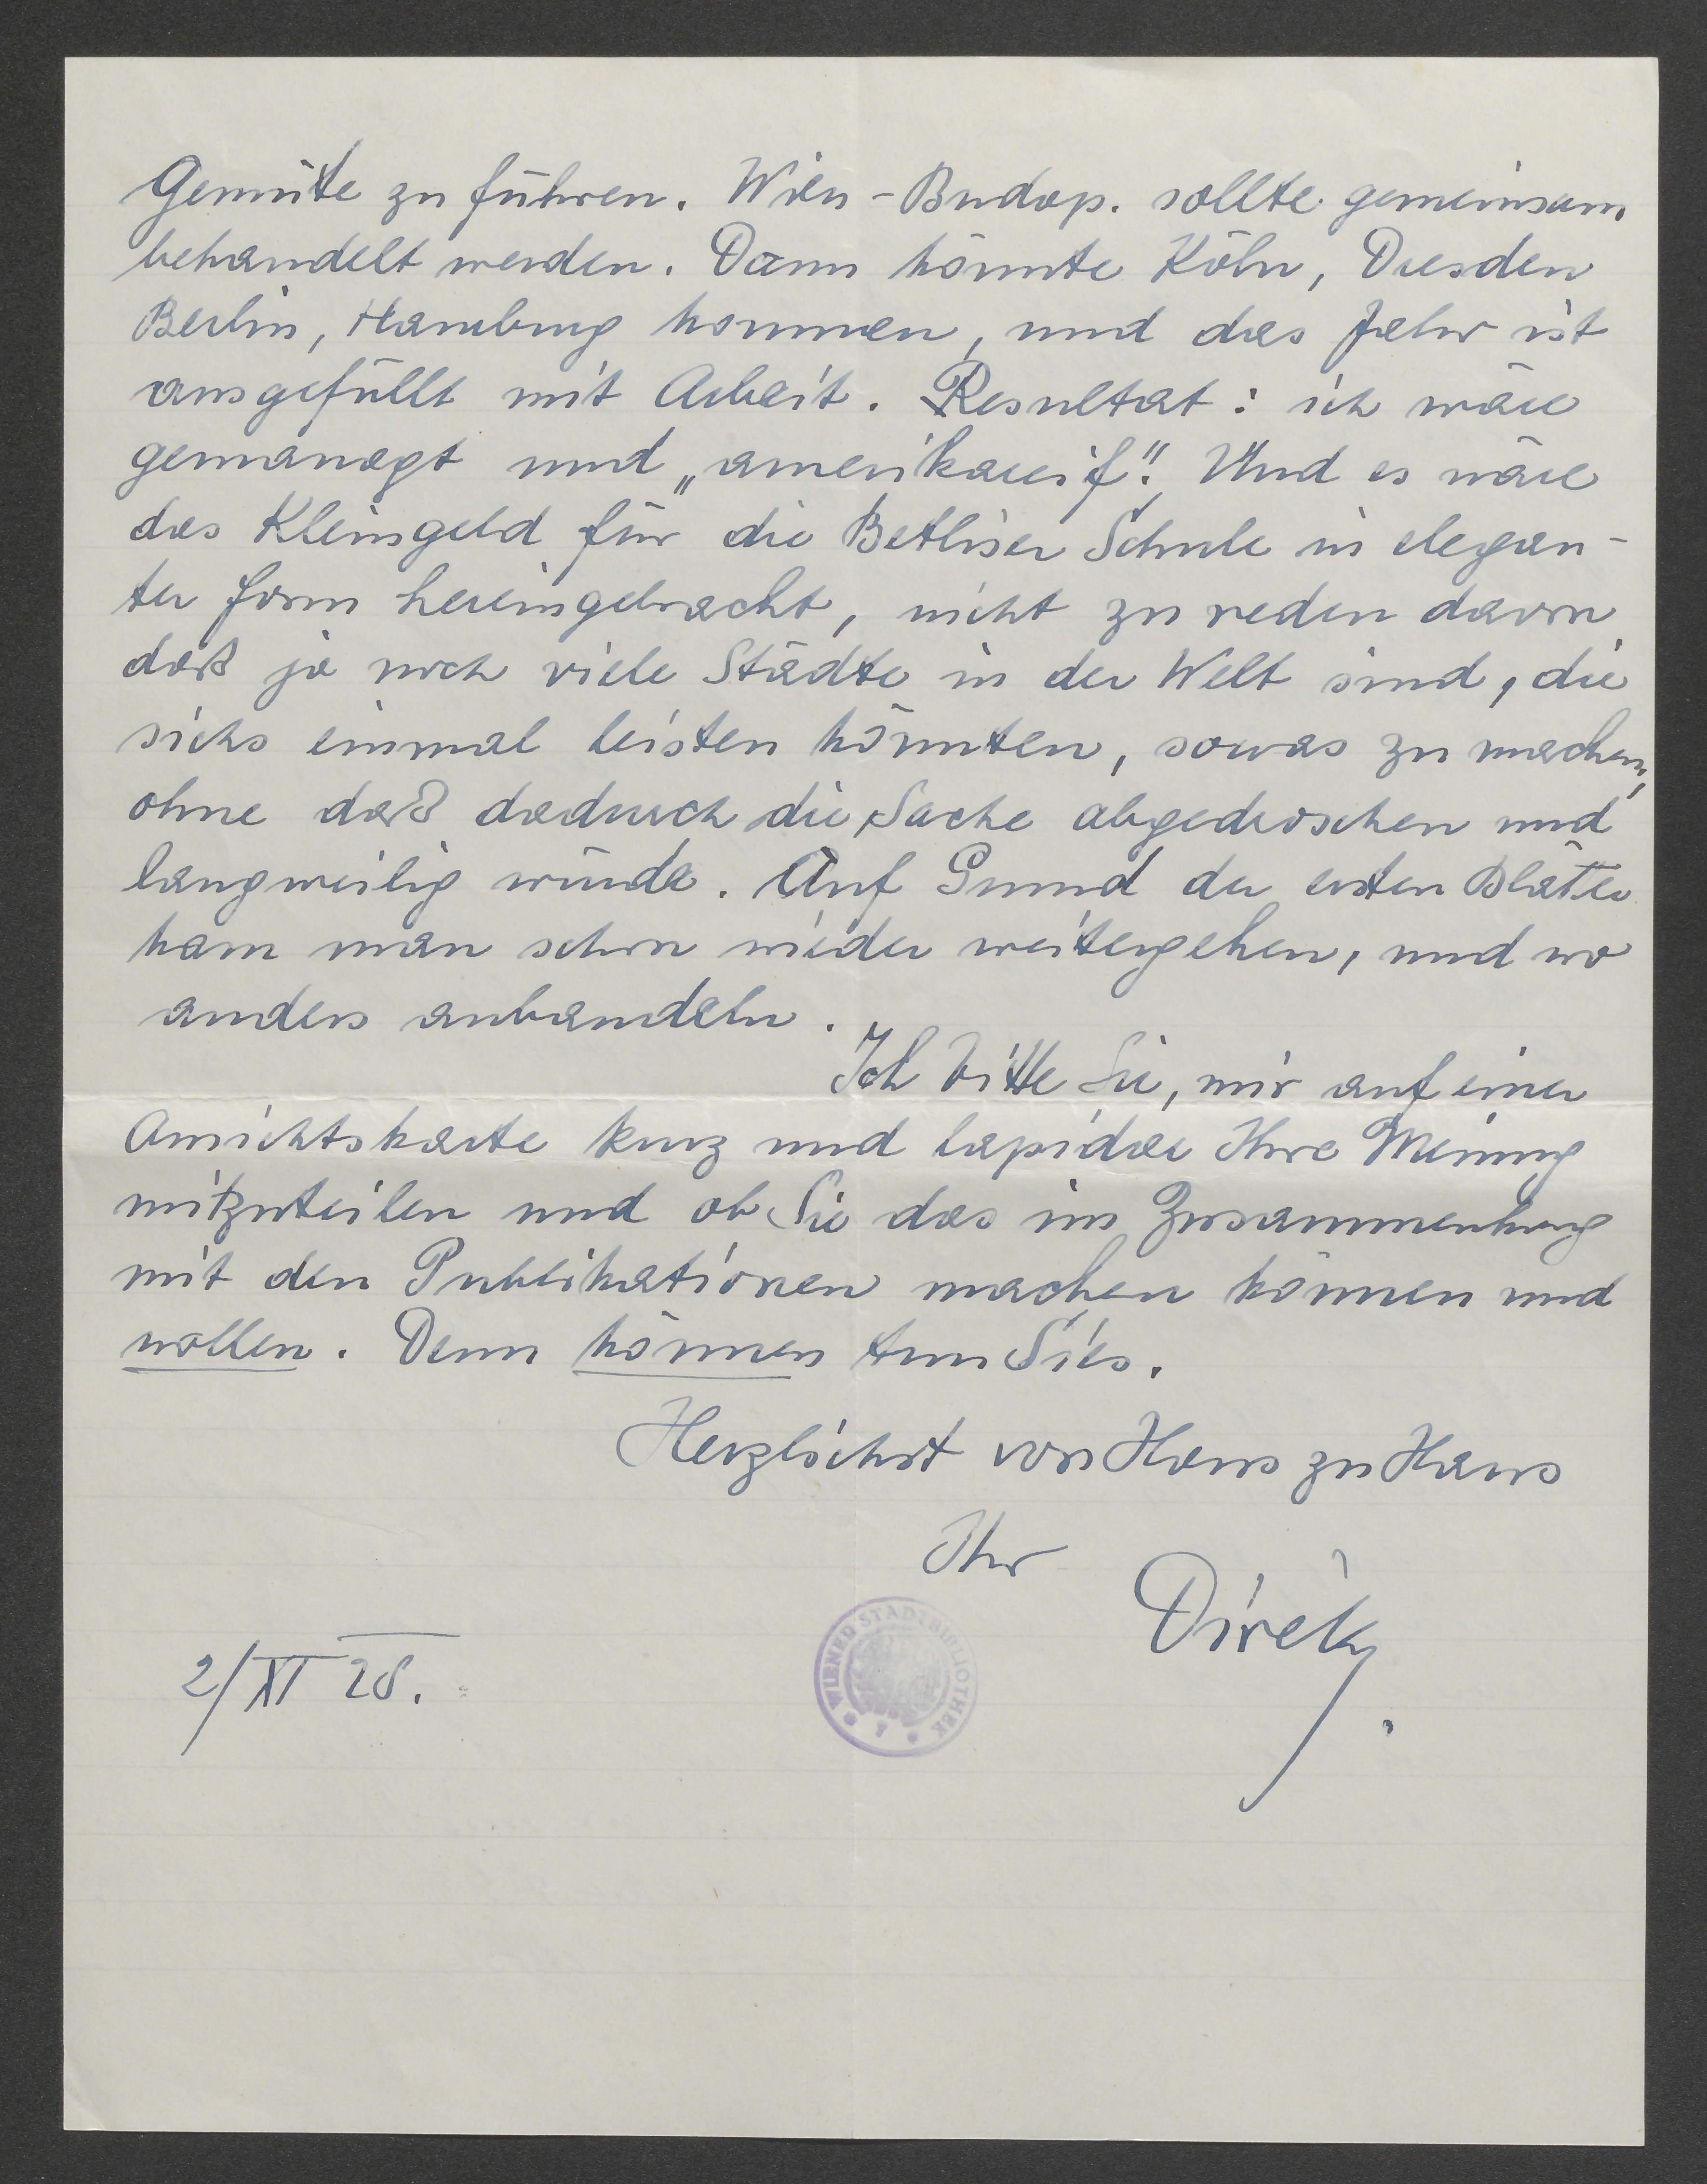 Gemüte zu führen. Wien-Budap. sollte gemeinsam
behandelt werden. Dann könnte Köln, Dresden
Berlin, Hamburg kommen, und das Jahr ist
ausgefüllt mit Arbeit. Resultat: ich wäre
gemanagt und „amerikareif". Und es wäre
das Kleingeld für die Betliser Schule in elegan-
ter Form hereingebracht, nicht zu reden davon
daß ja noch viele Städte in der Welt sind, die
sichs einmal leisten könnten, sowas zu machen,
ohne daß dadurch die Sache abgedroschen und
langweilig würde. Auf Grund der ersten Blätter
kann man schon wieder weitergehen, und wo
anders anbandeln.
Ich bitte Sie, mir auf einer
Ansichtskarte kurz und lapidar Ihre Meinung
mitzuteilen und ob Sie das im Zusammenhang
mit den Publikationen machen können und
wollen. Denn können tun Sie's.
Herzlichst von Haus zu Haus
Ihr
2/XI 28.
WIENER STADTBIBLIOTHEK